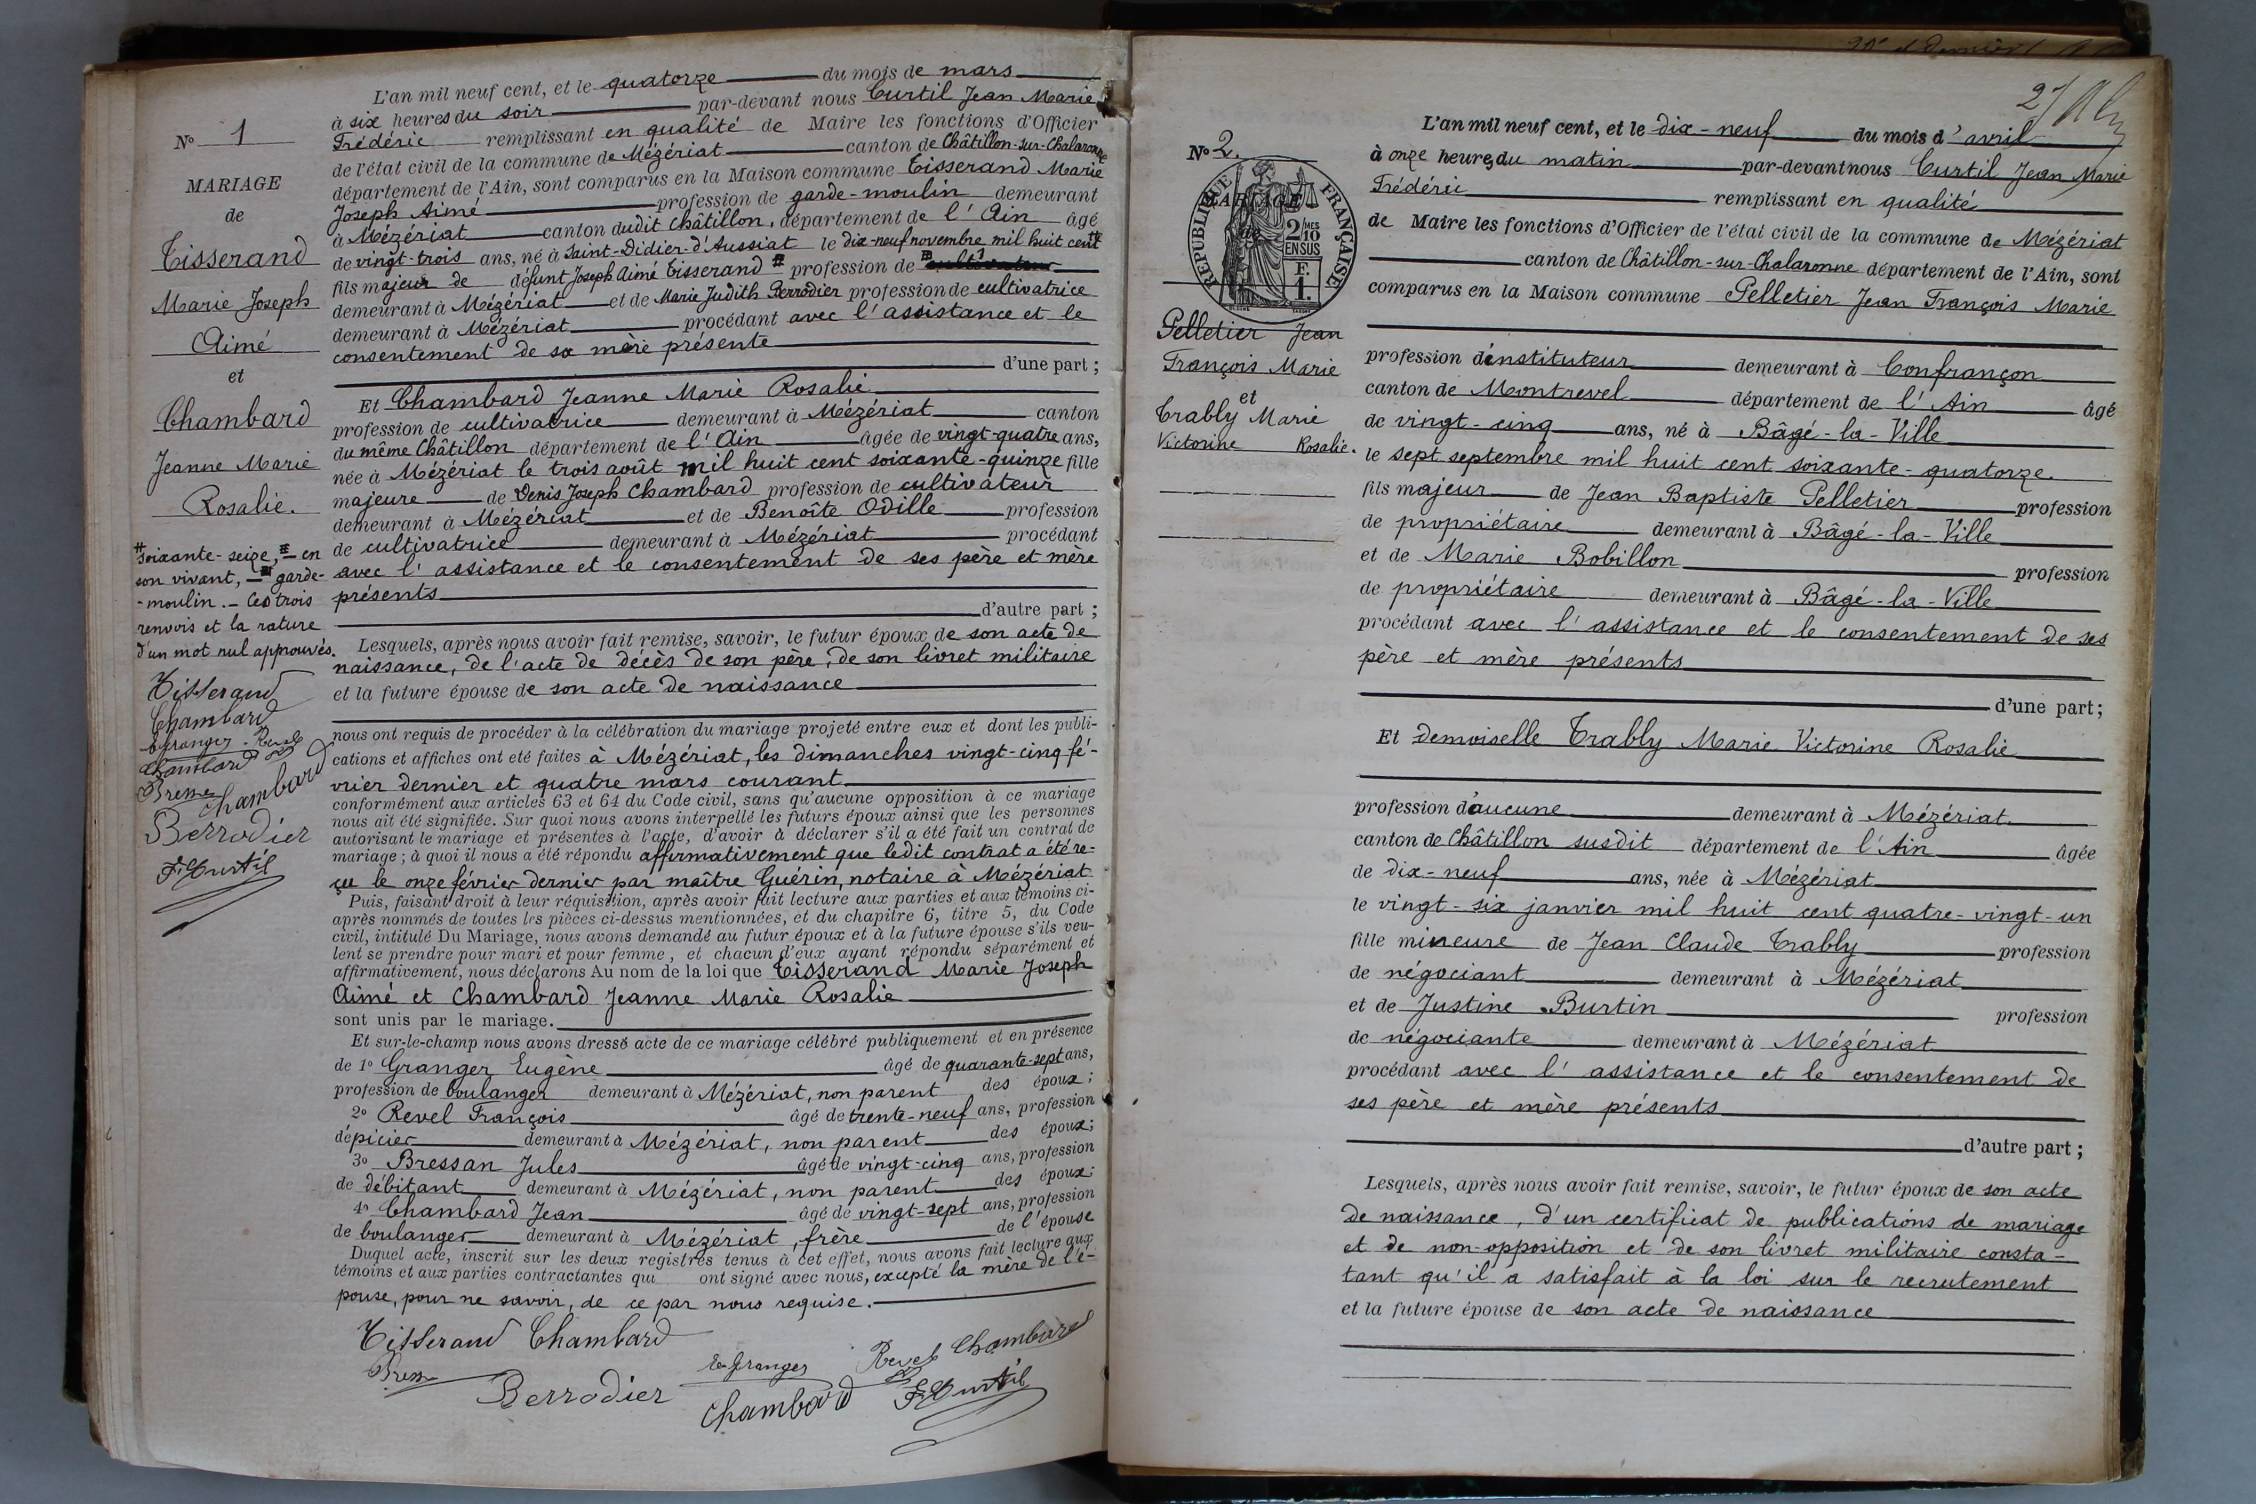 L'an mil neuf cent, et le quatorze du mois de mars
à six heures du soir par-devant nous Curtil Jean Marie
Frédéric remplissant en qualité de Maire les fonctions d'Officier
de l'état civil de la commune de Mézériat canton de Châtillon-sur-Chalaronne
département de l'Ain, sont comparus en la Maison commune Tisserand Marie
Joseph Aimé profession de garde-moulin demeurant
à Mézériat canton dudit Châtillon, département de l'Ain âgé
de vingt-trois ans, né à Saint-Didier-d'Aussiat le dix-neuf novembre mil huit cent #
fils majeur de défunt Joseph Aimé Tisserand profession de cultivateur
demeurant à Mézériat et de Marie Judith Berrodier profession de cultivatrice
demeurant à Mézériat procédant avec l'assistance et le
consentement de sa mère présente
d'une part ;
Et Chambard Jeanne Marie Rosalie
profession de cultivatrice demeurant à Mézériat canton
du même Châtillon département de l'Ain âgée de vingt-quatre ans,
née à Mézériat le trois août mil huit cent soixante-quinze fille
majeure de Denis Joseph Chambard profession de cultivateur
demeurant à Mézériat et de Benoîte Odille profession
de cultivatrice demeurant à Mézériat procédant
avec l'assistance et le consentement de ses père et mère
présents
d'autre part ;
Lesquels, après nous avoir fait remise, savoir, le futur époux de son acte de
naissance, de l'acte de décès de son père, de son livret militaire
et la future épouse de son acte de naissance
nous ont requis de procéder à la célébration du mariage projeté entre eux et dont les publi-
cations et affiches ont été faites à Mézériat, les dimanches vingt-cinq fé-
vrier dernier et quatre mars courant
conformément aux articles 63 et 64 du Code civil, sans qu'aucune opposition à ce mariage
nous ait été signifiée. Sur quoi nous avons interpellé les futurs époux ainsi que les personnes
autorisant le mariage et présentes à l'acte, d'avoir à déclarer s'il a été fait un contrat de
mariage ; à quoi il nous a été répondu affirmativement que ledit contrat a été re-
çu le onze février dernier par maître Guérin, notaire à Mézériat
Puis, faisant droit à leur réquisition, après avoir fait lecture aux parties et aux témoins ci-
après nommés de toutes les pièces ci-dessus mentionnées, et du chapitre 6, titre 5, du Code
civil, intitulé Du Mariage, nous avons demandé au futur époux et à la future épouse s'ils veu-
lent se prendre pour mari et pour femme, et chacun d'eux ayant répondu séparément et
affirmativement, nous déclarons Au nom de la loi que Tisserand Marie Joseph
Aimé et Chambard Jeanne Marie Rosalie
sont unis par le mariage.
Et sur-le-champ nous avons dressé acte de ce mariage célébré publiquement et en présence
de 1° Granger Eugène âgé de quarante-sept ans,
profession de boulanger demeurant à Mézériat, non parent des époux ;
2° Revel François âgé de trente-neuf ans, profession
d'épicier demeurant à Mézériat, non parent des époux ;
3° Bressan Jules âgé de vingt-cinq ans, profession
de débitant demeurant à Mézériat, non parent des époux ;
4° Chambard Jean âgé de vingt-sept ans, profession
de boulanger demeurant à Mézériat, frère de l'épouse
Duquel acte, inscrit sur les deux registres tenus à cet effet, nous avons fait lecture aux
témoins et aux parties contractantes qui ont signé avec nous, excepté la mère de l'é-
pouse, pour ne savoir, de ce par nous requise.
Tisserand Chambard
E Granger Revel Chambard
Berrodier Chambard F Curtil
N° 1
MARIAGE
de
Tisserand
Marie Joseph
Aimé
et
Chambard
Jeanne Marie
Rosalie.
# soixante-seize, en
son vivant, garde-
-moulin. - Ces trois
renvois et la rature
d'un mot nul approuvés.
Tisserand
Chambard
E granger Revel
Chambard
Chambard
Berrodier
F Curtil
27
N° 2.
MARIAGE
de
RÉPUBLIQUE FRANÇAISE
2/10 MES
EN SUS
F.
1.
Pelletier Jean
François Marie
et
Trably Marie
Victorine Rosalie.
L'an mil neuf cent, et le dix-neuf du mois d'avril
à onze heures du matin par-devant nous Curtil Jean Marie
Frédéric remplissant en qualité
de Maire les fonctions d'Officier de l'état civil de la commune de Mézériat
canton de Châtillon-sur-Chalaronne département de l'Ain, sont
comparus en la Maison commune Pelletier Jean François Marie
profession d'instituteur demeurant à Confrançon
canton de Montrevel département de l'Ain âgé
de vingt-cinq ans, né à Bâgé-la-Ville
le sept septembre mil huit cent soixante-quatorze.
fils majeur de Jean Baptiste Pelletier profession
de propriétaire demeurant à Bâgé-la-Ville
et de Marie Bobillon profession
de propriétaire demeurant à Bâgé-la-Ville
procédant avec l'assistance et le consentement de ses
père et mère présents
d'une part ;
Et Demoiselle Trably Marie Victorine Rosalie
profession d'aucune demeurant à Mézériat
canton de Châtillon susdit département de l'Ain âgée
de dix-neuf ans, née à Mézériat
le vingt-six janvier mil huit cent quatre-vingt-un
fille mineure de Jean Claude Trably profession
de négociant demeurant à Mézériat
et de Justine Burtin profession
de négociante demeurant à Mézériat
procédant avec l'assistance et le consentement de
ses père et mère présents
d'autre part ;
Lesquels, après nous avoir fait remise, savoir, le futur époux de son acte
de naissance, d'un certificat de publications de mariage
et de non-opposition et de son livret militaire consta-
tant qu'il a satisfait à la loi sur le recrutement
et la future épouse de son acte de naissance